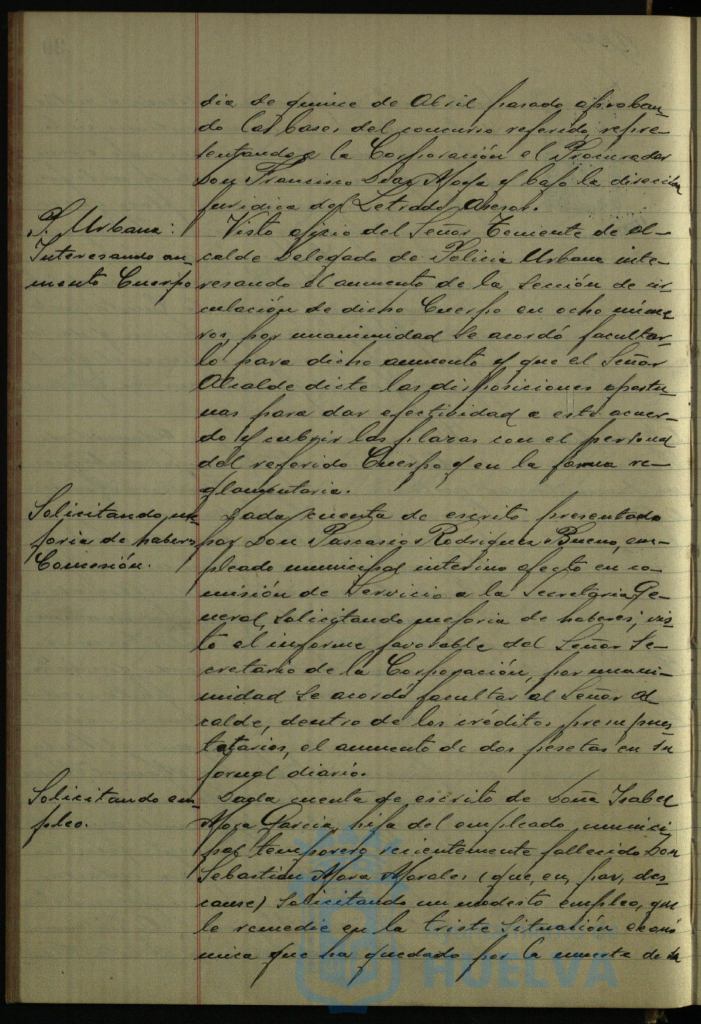 dia de quince de Abril pasado aproban-
do las bases del concurso referido, repre-
sentando a la Corporación el Procurador
Don Francisco Diaz y bajo la direccion
juridica del Letrado Asesor.
P. Urbana:
Interesando au-
mento Cuerpo
Visto oficio del Señor Teniente de Al-
calde Delegado de Policia Urbana inte-
resando el aumento de la Sección de cir-
culación de dicho Cuerpo en ocho núme-
ros, por unanimidad se acordó facultar-
lo para dicho aumento y que el Señor
Alcalde dicte las disposiciones oportu-
nas para dar efectividad a este acuer-
do y cubrir las plazas con el personal
del referido Cuerpo y en la forma re-
glamentaria.
Solicitando me-
joria de haberes
Concesión.
Dada cuenta de escrito presentado
por Don Pascasio Rodriguez Bueno, em-
pleado municipal interino afecto en co-
misión de Servicio a la Secretaria Ge-
neral, solicitando mejoria de haberes; vis-
to el informe favorable del Señor Se-
cretario de la Corporación, por unani-
midad se acordó facultar al Señor Al-
calde, dentro de los créditos presupues-
tatarios, el aumento de dos pesetas en su
jornal diario.
Solicitando em-
pleo.
Dada cuenta de escrito de Doña Isabel
Garcia, hija del empleado munici-
pal temporero recientemente fallecido Don
Sebastián Mora Morales (que, en, paz, des-
canse) solicitando un modesto empleo, que
le remedie en la triste situación econó-
mica que ha quedado por la muerte de su
HUELVA